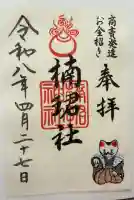 商売発達
お金招き
奉拝
楠珺社
令和八年四月二十七日